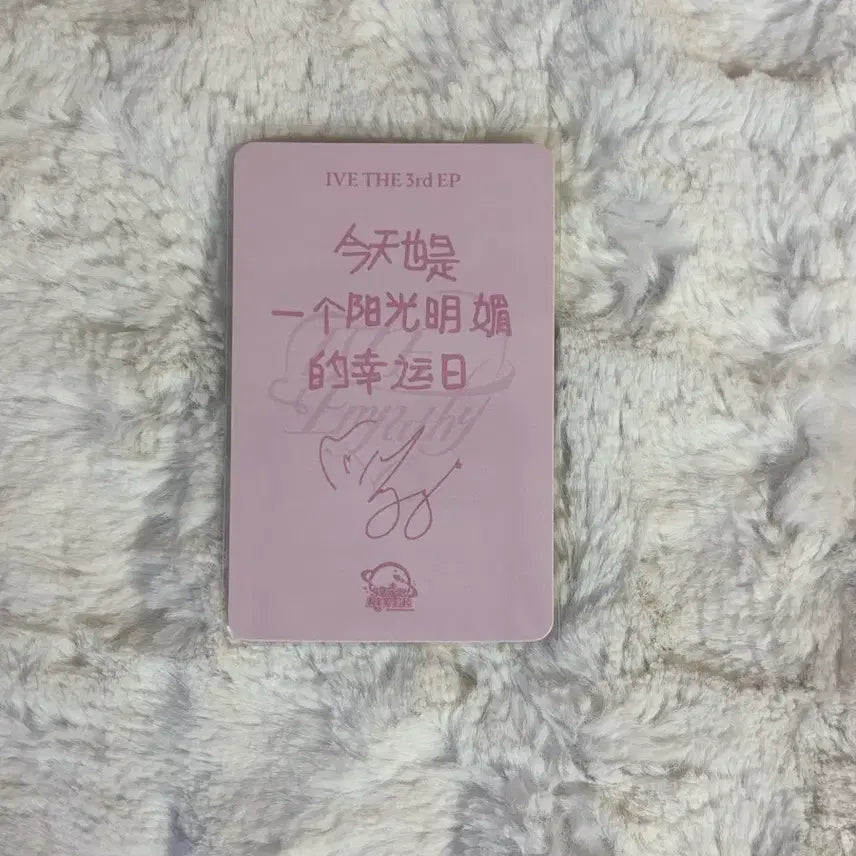 IVE THE 3rd EP
今天也是
一个阳光明媚
的幸运日
Empathy